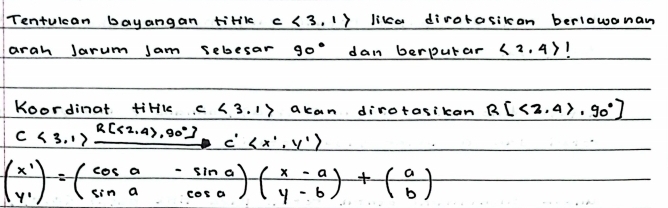 Tentukan bayangan titik c <3,1> jika dirotasikan berlawanan
arah jarum jam sebesar 90° dan berputar <2,4>!
Koordinat titik c <3.1> akan dirotasikan R[<2.4>, 90°]
C <3,1> R[<2,4>,90°] → c' <x', y'>
(x' y') = (cos a - sin a sin a cos a) (x - a y - b) + (a b)